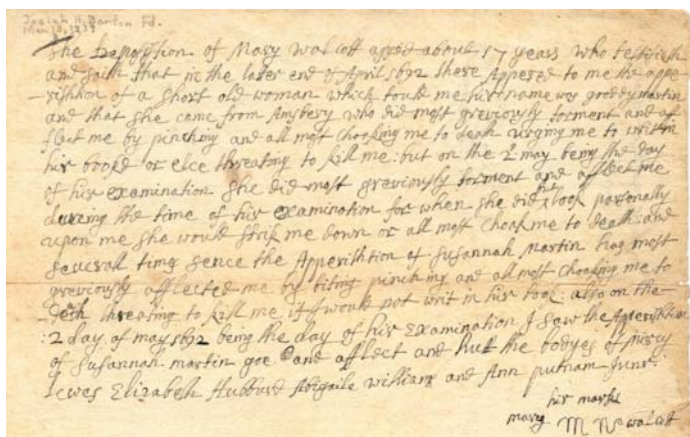 Josiah H. Benton Fd.
Mar. 13, 1939
The Deposition of Mary Walcott agged about 17 years who testifieth
and saith that in the later end of April 1692 there Appered to me the appe-
rishtion of a short old woman which tould me hir name was goddy martin
and that she came from Amsbery who did most greviously torment and af
flect me by pinching and all most choaking me to death urging me to writ in
hir book or elce threating to kill me. but on the 2. may being the day
of hir examination she did most greviously torment and afflect me
dureing the time of hir examination for when she did but look parsonally
upon me she would strik me down or all most choak me to death: and
severall times sence the Apperishtion of Susannah Martin has most
greviously afflected me by biting pinching and all most choaking me to
death threating to kill me if I would not writ in hir book: also on the
:2 day of may 1692 being the day of hir Examination I saw the Aperishtion
of Susannah. martin goe and afflect and hurt the bodyes of mircy
lewes Elizabeth Hubbard Abigaile williams and Ann putnam Junr.
hir marke
mary M walcott